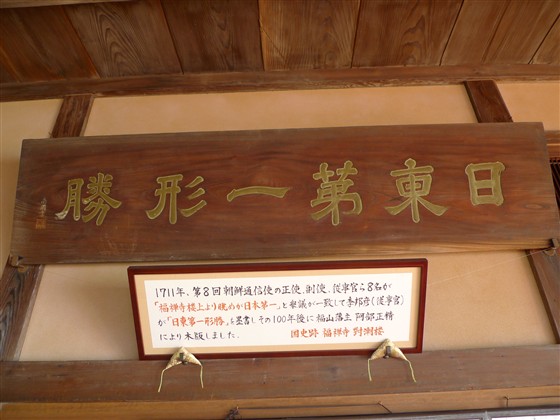 日東第一形勝
1711年、第8回朝鮮通信使の正使、副使、従事官ら8名が
「福禅寺楼上より眺めが日本第一」と衆議が一致して李邦彦(従事官)
が「日東第一形勝」を墨書しその100年後に福山藩主 阿部正精
により木版しました。 国史跡 福禅寺 對潮楼